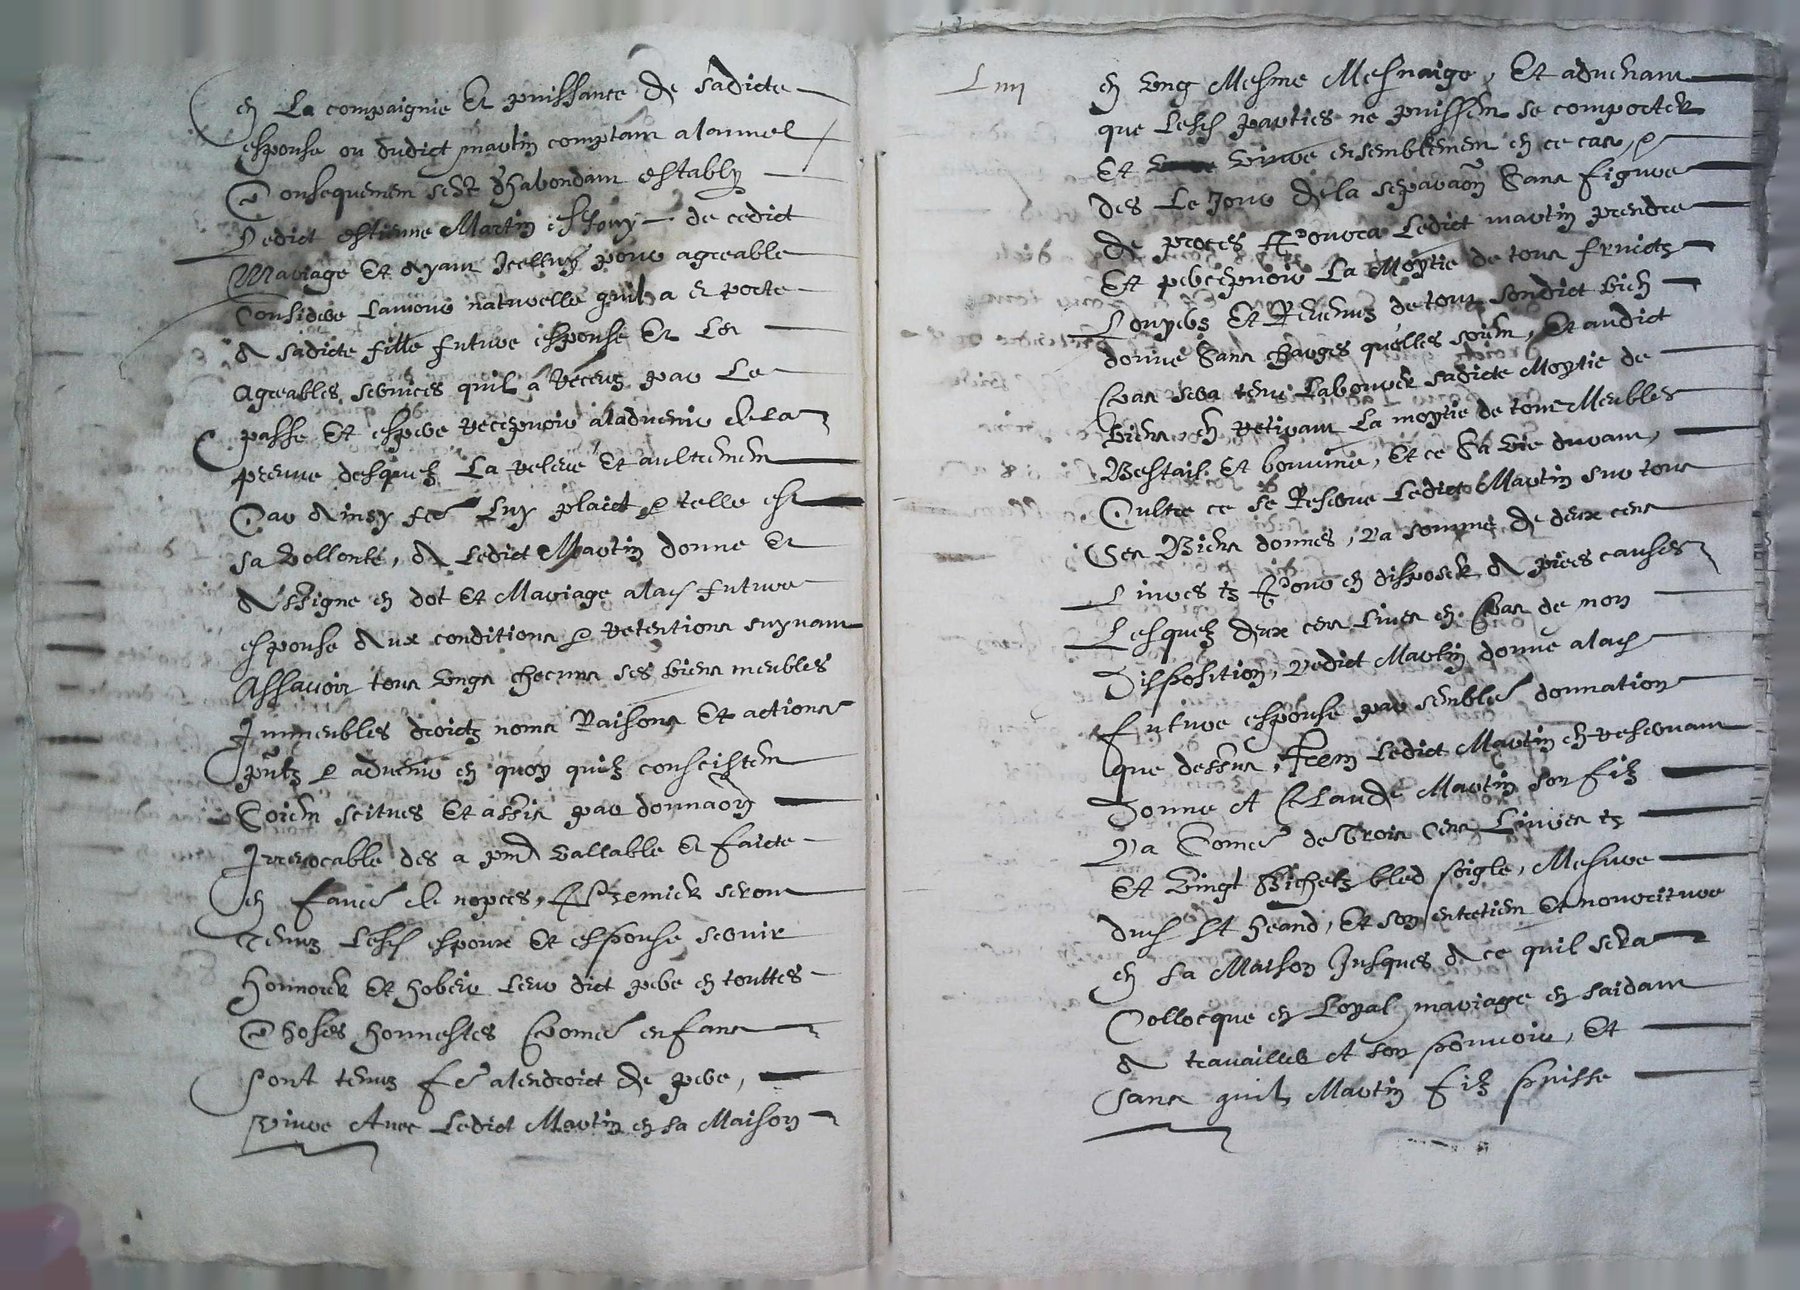 en la compaignie et puissance de sadicte
espouse ou dudict martin comptant alanuel
Consequemem sest dhabondam estably
Ledict estienne Martin esjouy de cedict
Mariage Et ayant Icelluy pour agreable
Considere lamour naturelle quil a et porte
a sadicte fille future espouse Et les
agreables services quil a receuz par le
passe Et espere recepvoir aladvenir de la
preuve desquelz la releve Et aultrement
Car ainsy fere luy plaict et telle est
sa vollonte, a ledict Martin donne et
assigne en dot Et Mariage alad future
espouse aux conditions et retentions suyvam
Assavoir tous ungs checuns ses biens meubles
Immeubles droictz noms Raisons Et actions
pntz et advenir en quoy quilz conscistem
Soiem scitues Et assis par donnaon
Irrevocable des a pnt vallable et faicte
en faveur de nopces, Premier seront
Tenuz lesd espoux Et espouse servir
honnorer Et hobeir leur dict pere en touttes
Choses honnestes Come enfans
sont tenuz fere alendroict de pere,
vivre Avec Ledict Martin en sa Maison
Liiii
en ung Mesme Mesnaige, Et advenant
que lesd parties ne puissem se comporter
Et vivre ensemblement en ce cas, et
des Le Jour de la separaon Sans figure
de proces Pourra Ledict martin prendre
Et percepvoir La Moytie de tous fruictz
Louyers Et Revenuz de tout sondict bien
donne Sans charges quelles soiem, Et audict
Cas sera tenu Labourer sadicte Moytie de
biens en retirant La moytie de tous Meubles
Bestail Et bouvine, Et ce Sa vie durant,
Oultre ce se Reserve Ledict Martin sur tous
Ses Biens donnes, La somme de deux cens
Livres tz Pour en disposer a pies causes
Lesquelz deux cens Livres en Cas de non
Disposition, Ledict Martin donne alad
future espouse par semble donnation
que dessus, Item Ledict Martin en reservant
Donne A Claude Martin son filz
La Some de Trois Cens Livres tz
Et vingt Bichetz bled soigle, Mesure
dud St heand, Et son entretien Et nourriture
en sa Maison Jusques a ce quil sera
Collocque en Loyal mariage en saidant
a travailler A son pouvoir, Et
sans quil Martin filz puisse